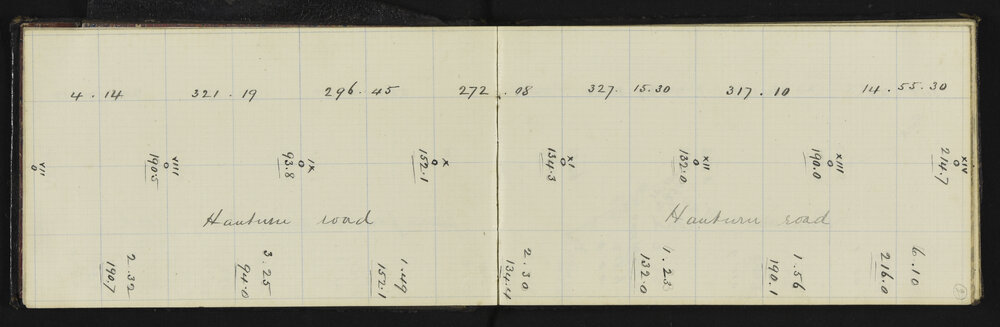 4 . 14 321 . 19 296 . 45 272 . 08 327. 15.30 317 . 10 14 . 55. 30
VII VIII IX X XI XII XIII XIV
190.5 93.8 152.1 134.3 132.0 190.0 214.7
road road
2.32 3.25 1.49 2.30 1.23 1.56 6.10
190.7 94.0 152.1 134.4 132.0 190.1 216.0